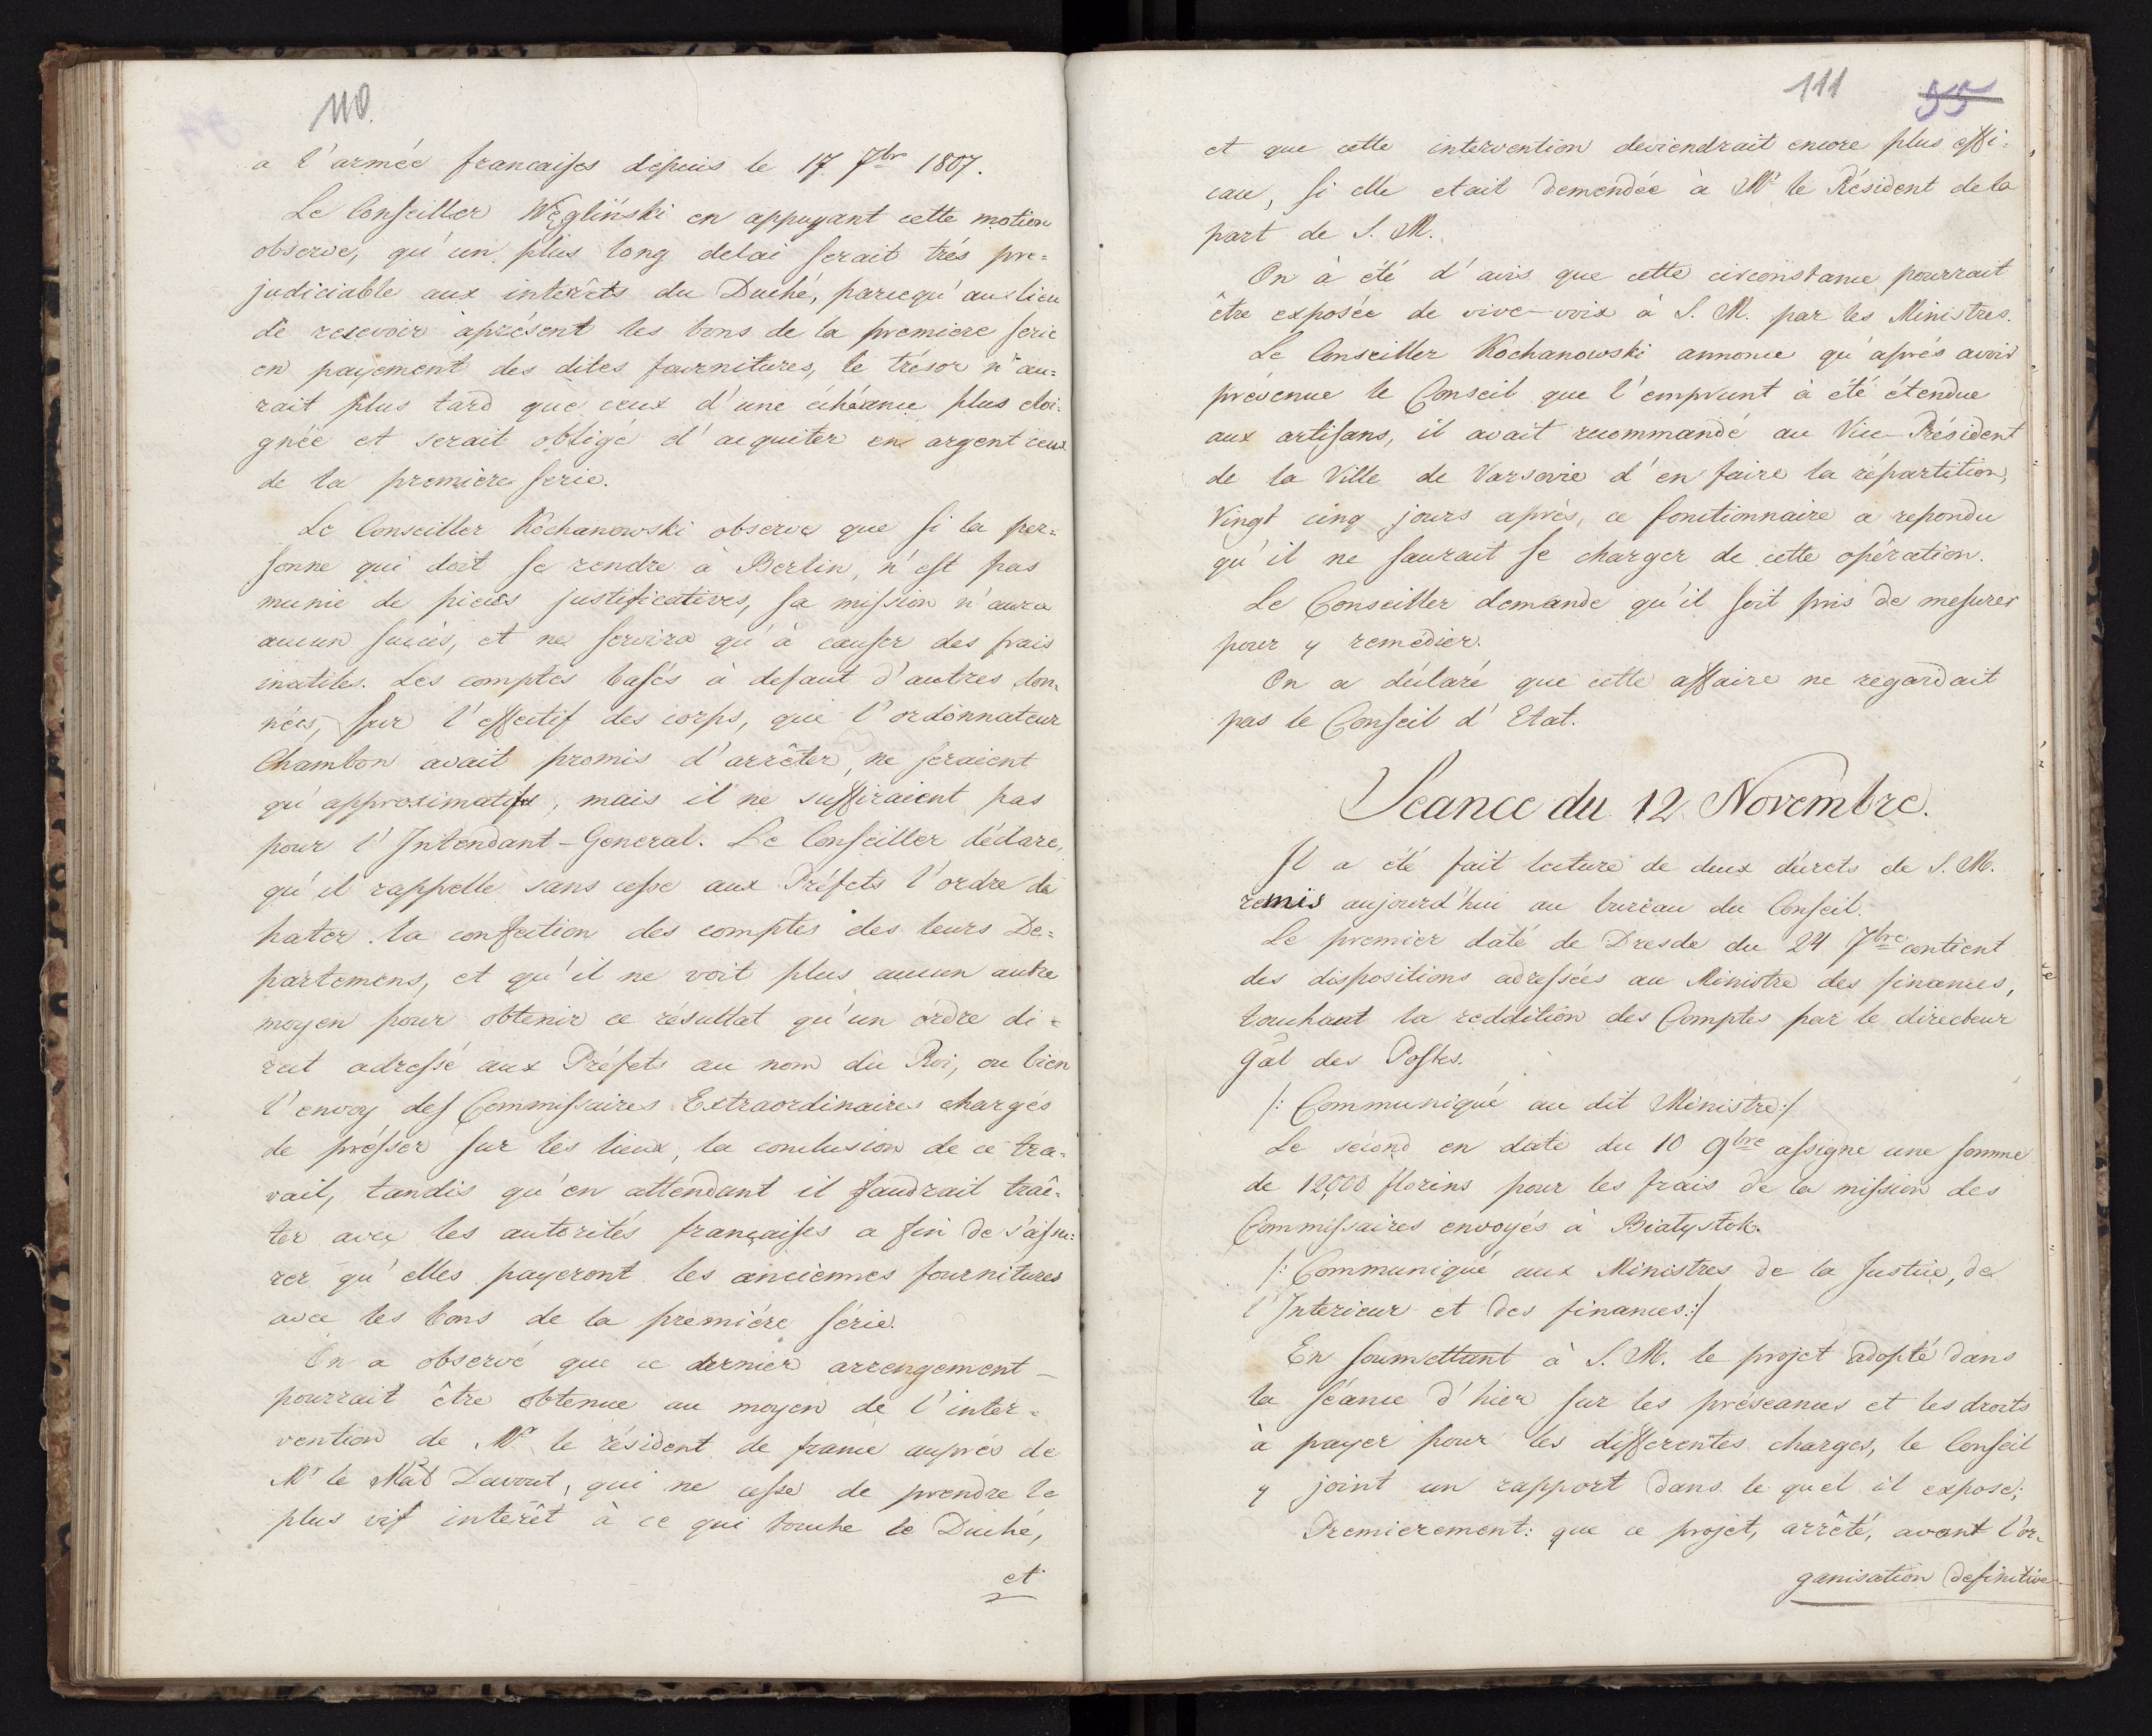 110.
a l'armée francaises depuis le 17 7br 1807.
Le Conseiller Węgliński en appuyant cette motion
observe, qu'un plus long delai serait trés pre=
judiciable aux intérêts du Duché, parcequ'au lieu
de recevoir aprésent les bons de la premiere serie
en payement des dites fournitures, le trésor n'au=
rait plus tard que ceux d'une échéance plus eloi=
gnée et serait obligé d'acquiter en argent ceux
de la première serie.
Le Conseiller Kochanowski observe que si la per=
sonne qui doit se rendre à Berlin, n'est pas
munie de pieces justificatives, sa mission n'aura
aucun succès, et ne servira qu'à causer des frais
inutiles. Les comptes basés à defaut d'autres don=
nées, sur l'effectif des corps, que l'ordonnateur
Chambon avait promis d'arrêter, ne seraient
qu'approximatifs, mais il ne suffiraient pas
pour l'Intendant-General. Le Conseiller déclare,
qu'il rappelle sans cesse aux Préfets l'ordre de
hater la confection des comptes des leurs De=
partemens, et qu'il ne voit plus aucun autre
moyen pour obtenir ce résultat qu'un ordre di=
rect adressé aux Préfets au nom du Roi, ou bien
l'envoy des Commissaires Extraordinaires chargés
de présser sur les lieux, la conclusion de ce tra=
vail, tandis qu'en attendant il faudrait traî=
ter avec les autorités françaises a fin de s'assu=
rer qu'elles payeront les anciennes fournitures
avec les bons de la première série.
On a observé que ce dernier arrengement
pourrait être obtenue au moyen de l'inter=
vention de Mr le résident de france auprés de
Mr le Mal Davout, qui ne cesse de prendre le
plus vif intérêt à ce qui touche le Duché,
et
111
55
et que cette intervention deviendrait encore plus effi=
cace, si elle etait demendée à Mr le Résident de la
part de S. M.
On à été d'avis que cette circonstance pourrait
être exposée de vive-voix à S. M. par les Ministres.
Le Conseiller Kochanowski annonce qu'aprés avoir
prévenue le Conseil que l'emprunt à été étendue
aux artisans, il avait recommandé au Vice-Président
de la Ville de Varsovie d'en faire la répartition,
Vingt cinq jours après, ce fonctionnaire a repondu
qu'il ne saurait se charger de cette opération.
Le Conseiller demande qu'il soit pris de mesures
pour y remédier.
On a déclaré que cette affaire ne regardait
pas le Conseil d'Etat.
Seance du 12 Novembre.
Il a été fait lecture de deux décrets de S. M.
remis aujourd'hui au bureau du Conseil.
Le premier daté de Dresde du 24 7bre contient
des dispositions adressées au Ministre des finances,
touchant la reddition des Comptes par le directeur
gal des Postes.
/: Communiqué au dit Ministre:/
Le second en date du 10 9bre assigne une somme
de 12,000 florins pour les frais de la mission des
Commissaires envoyés à Białystok.
/: Communiqué aux Ministres de la Justice, de
l'Interieur et des finances:/
En soumettant à S. M. le projet adopté dans
la séance d'hier sur les préseances et les droits
à payer pour les differentes charges, le Conseil
y joint un rapport dans le quel il expose;
Premierement: que ce projet, arrêté, avant l'or=
ganisation definitive